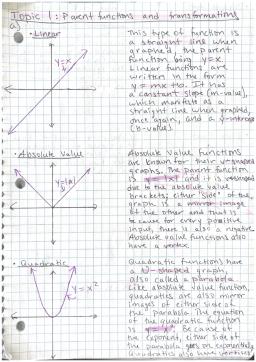 Topic 1: Parent functions and transformations
a)
• Linear
y=x
This type of function is
a straight line when
graphed, the parent
function being y=x.
Linear functions are
written in the form
y=mx+b. It has
a constant slope (m-value),
which manifests as a
straight line when graphed,
once again, and a y-intercept
(b-value).
• Absolute Value
y=|x|
Absolute value functions
are known for their v-shaped
graphs. The parent function
is y=|x| and it is
due to the absolute value
brackets, either "side" of the
graph is a mirror image
of the other and that is
because for every positive
input, there is also a negative.
Absolute value functions also
have a vertex.
• Quadratic
y=x²
Quadratic functions have
a U-shaped graph,
also called a parabola.
Like absolute value function,
quadratics are also mirror
images of either side of
the parabola. The equation
of the quadratic function
is y=x². Because of
the exponent, either side of
the parabola goes on exponentially.
Quadratics also have vertices.